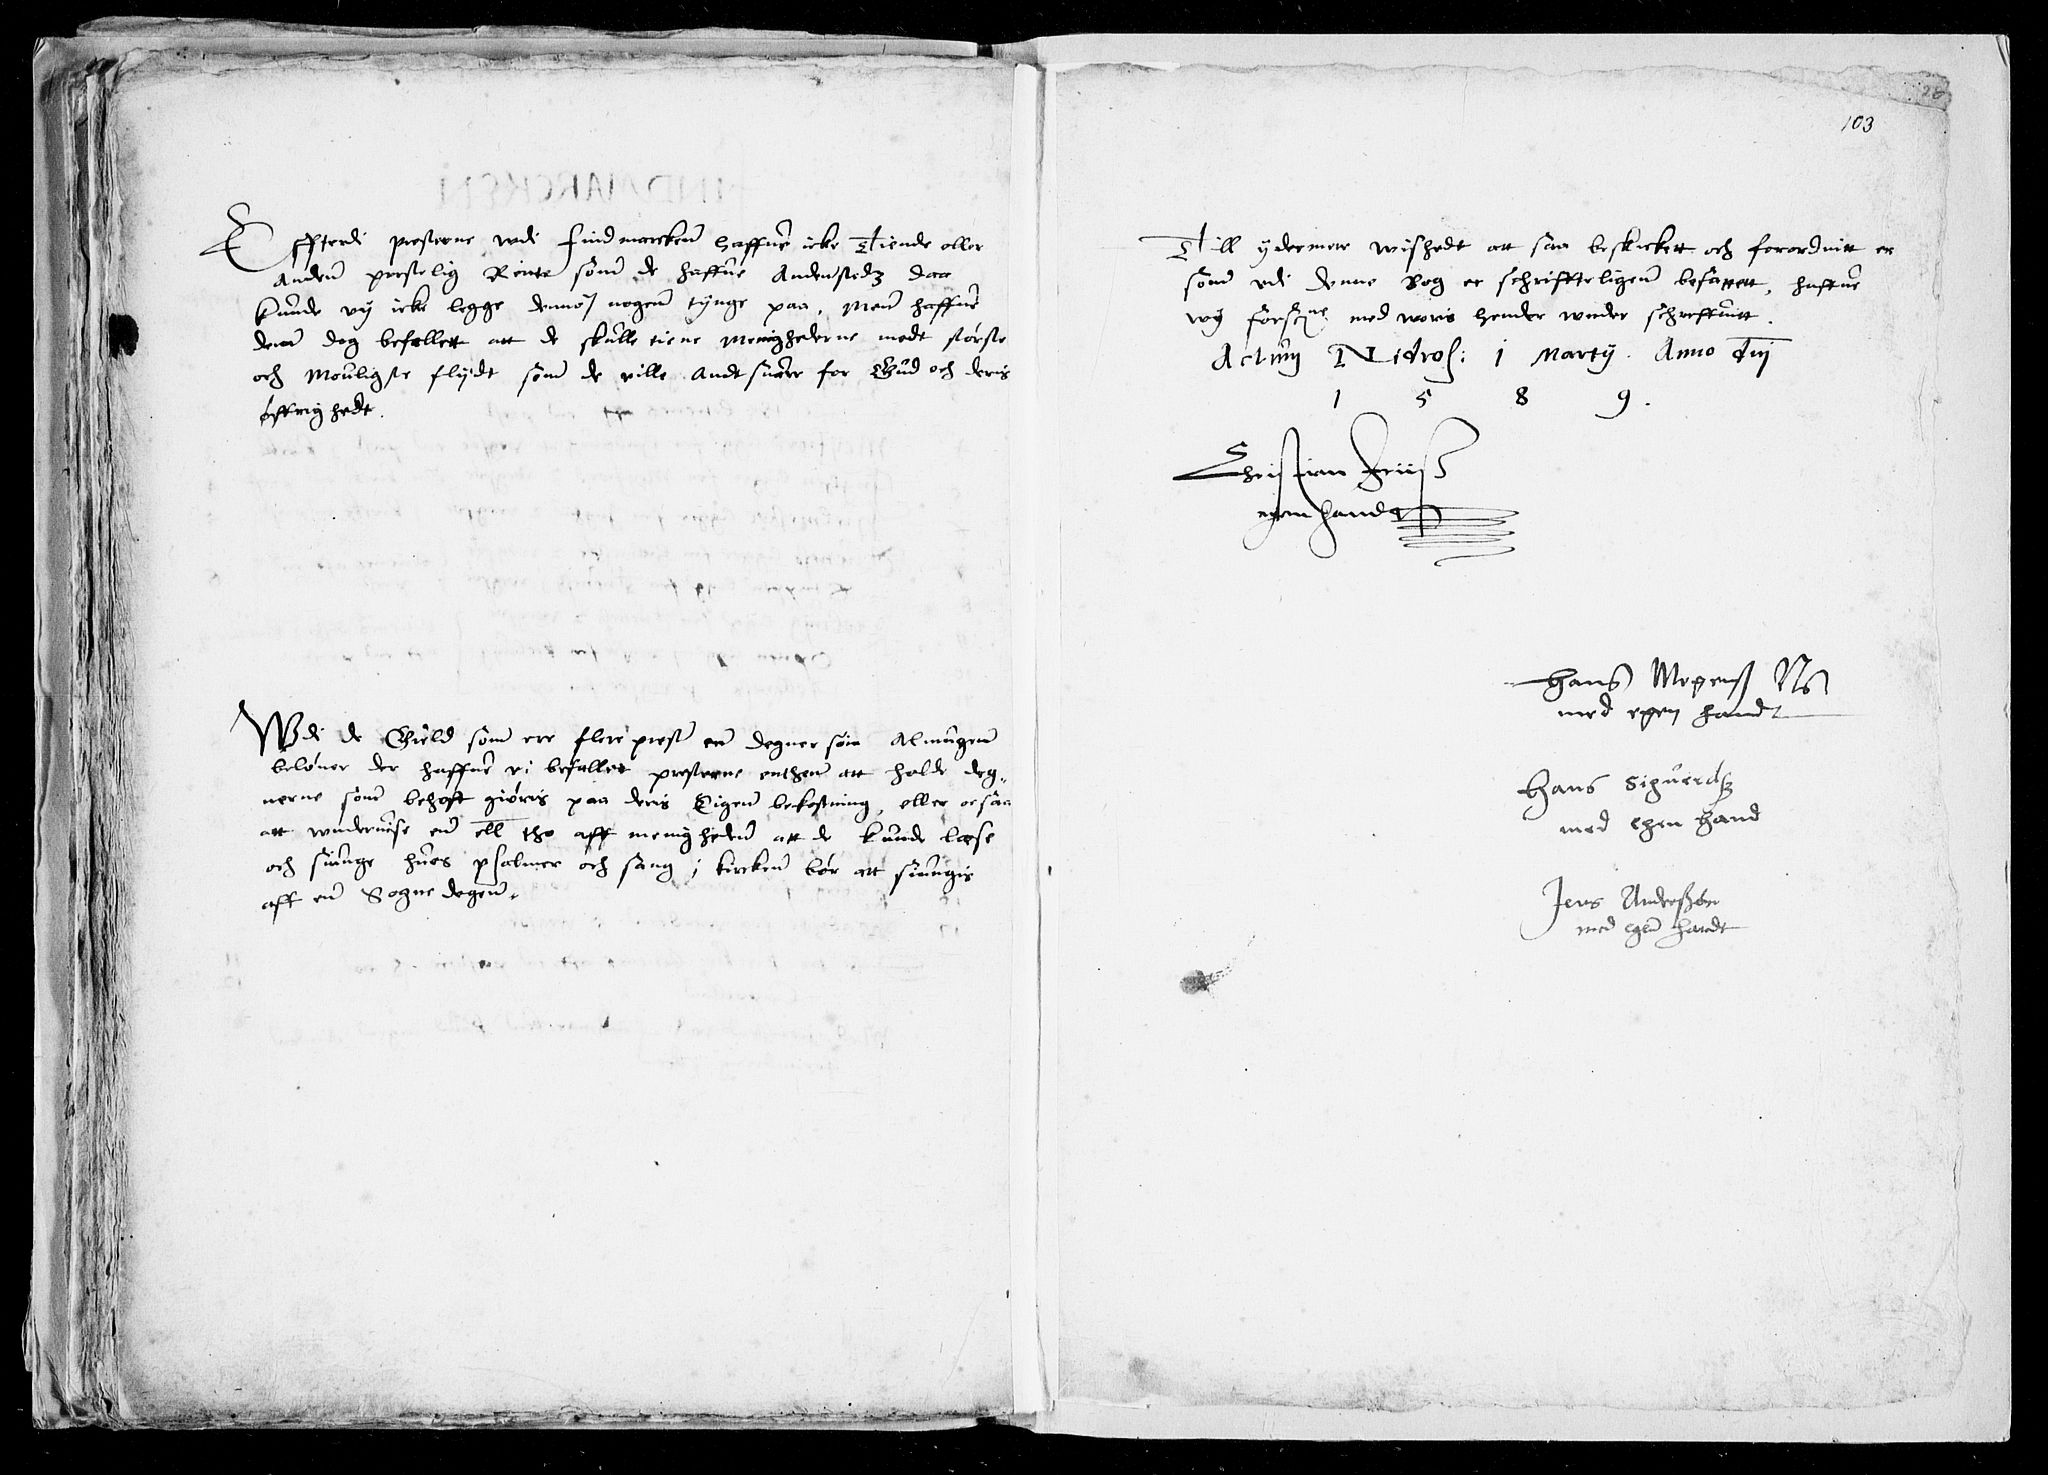 Effterdi presterne wdi Findmarcken haffue icke Tiende eller
Anden prestelig Rente som de haffue Andenstedz daa
kunde vij icke legge dennom nogen tynge paa, Men haffue
dem dog befallett att de skulle tiene Menighederne medt største
och Mouligste flijdt som de ville Andtsuare for Gud och deris
øffrighedt.
Wdi de Gield som ere flere prester end degner som Almugen
beløner der haffue vi befallet presterne enthen att holde deg-
nerne som behoff giøris paa deris Eigen bekostning, eller ocsaa
att wnderuise en ell tho aff menigheden att de kunde læse
och siunge hues psalmer och sang i kircken bør att siungis
aff en Sogne degen.
28
103
Till ydermere wishedt att saa beskickett och forordnitt er
som vdi denne Bog er schrifftteligen befattett, haffue
wij forscne med woris hender wnder schreffuitt.
Actum Nidros: 1 Martij. Anno Dni
1 5 8 9.
Christian Friiss
egen handt
Hans Mogenss Ns
med egen handt
Hans Siguerdss
med egen Hand
Jens Anderssøn
med egen handt
FINDMARCKEN